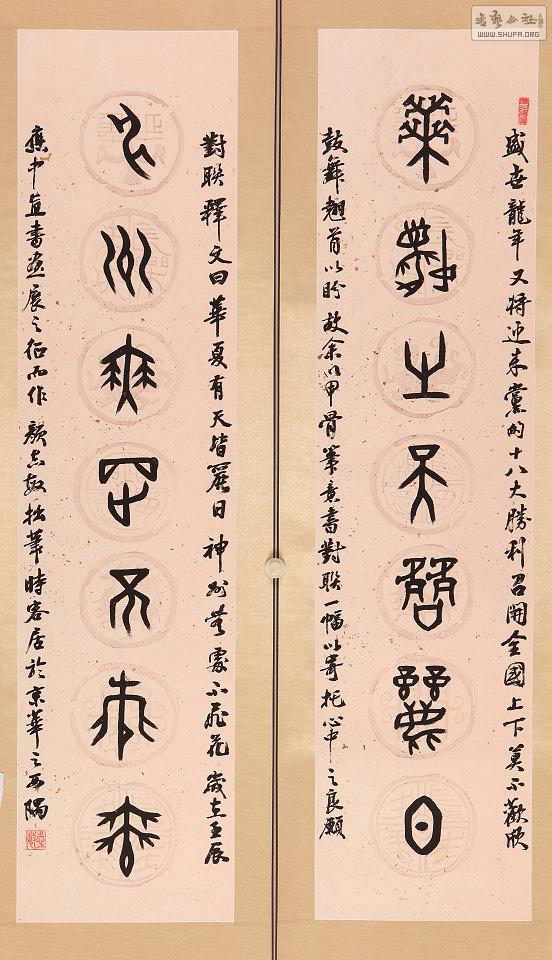 盛世龍年又將迎来黨的十八大勝利召開全國上下莫不歡欣
華夏有天皆麗日
鼓舞翹首以盼故余以甲骨筆意書對联一幅以寄托心中之良願
對联釋文曰華夏有天皆麗日神州无處不飛花歲在壬辰
神州无處不飛花
應中直書畫展之征而作顏拙筆時客居於京華之西隅
WWW.SHUFA.ORG